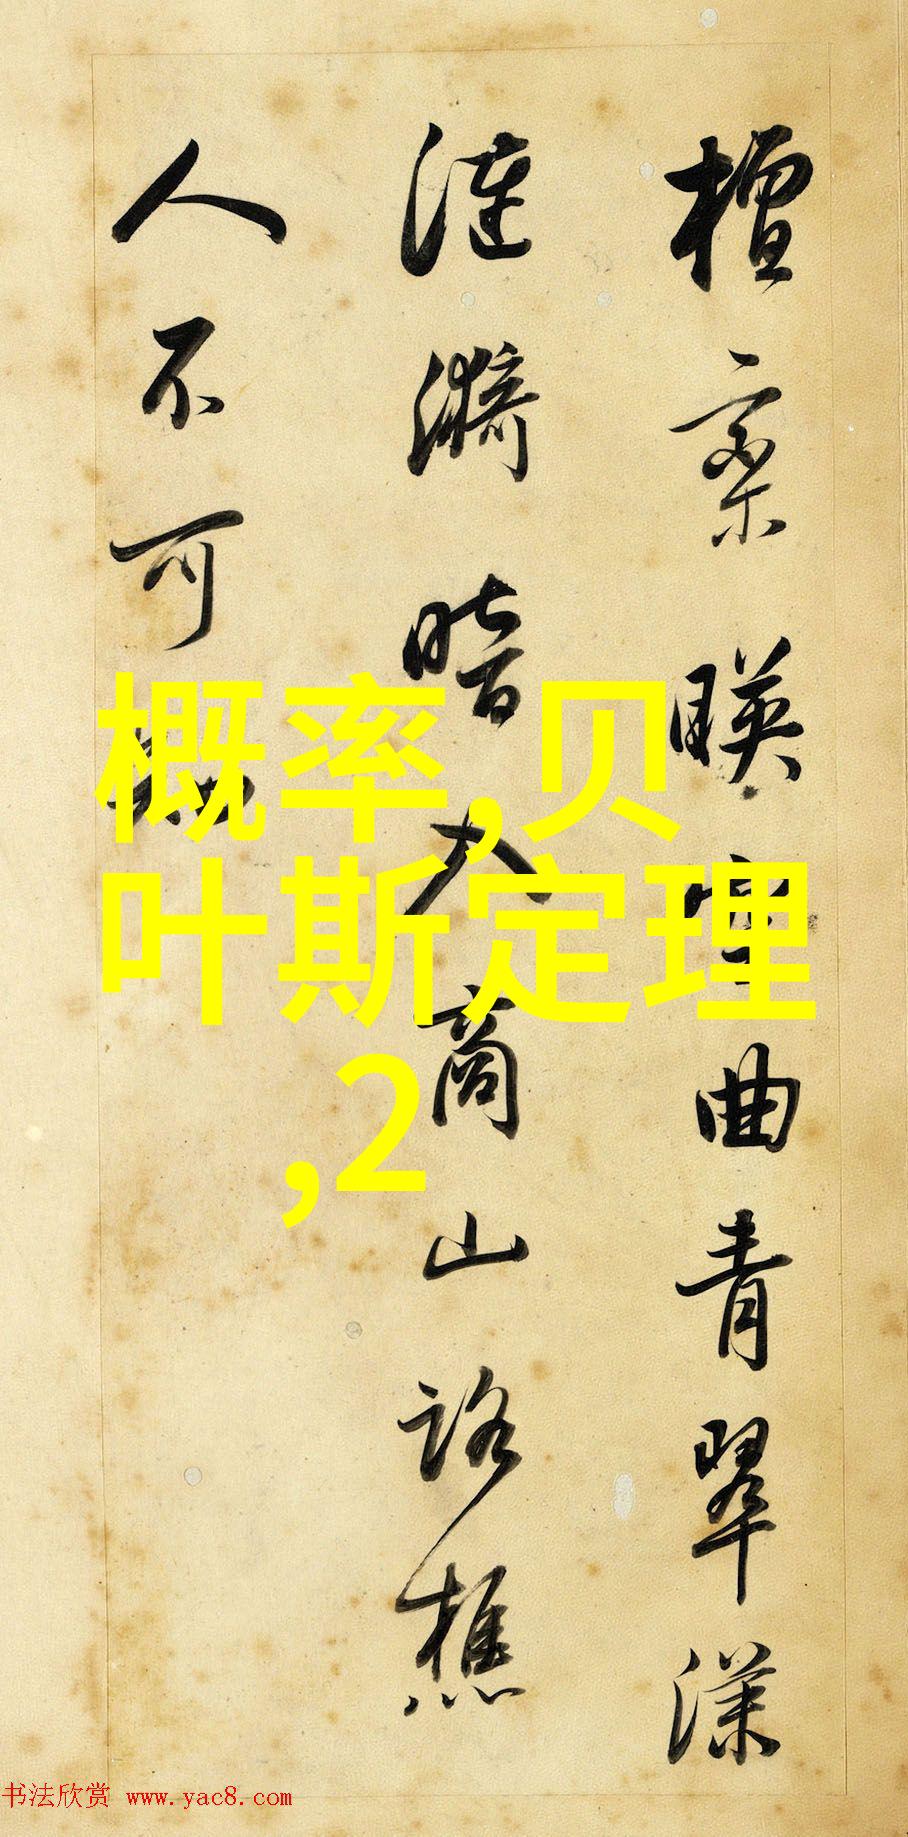 檀欒暎空曲青翠漾
漣漪暗入商山路樵
人不可知
概率,贝
叶斯定理
,2
书法欣赏 www.yac8.com